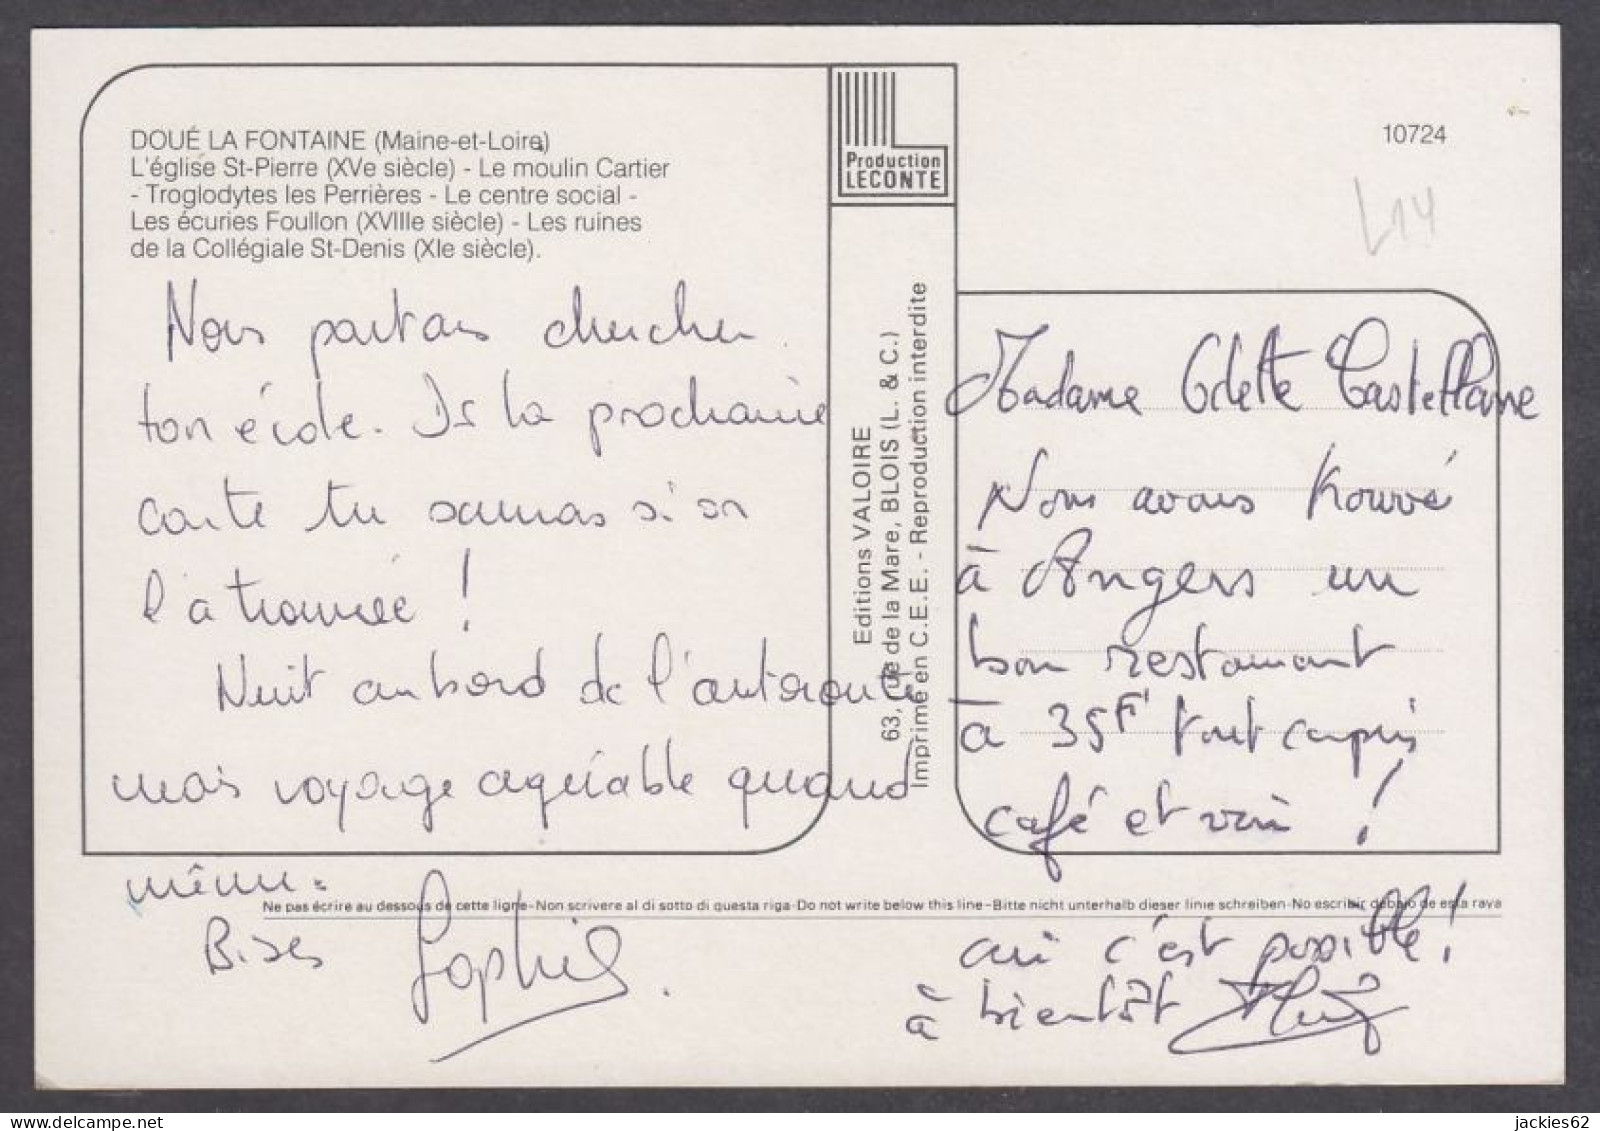 DOUÉ LA FONTAINE (Maine-et-Loire)
L'église St-Pierre (XVe siècle) - Le moulin Cartier
- Troglodytes les Perrières - Le centre social -
Les écuries Foullon (XVIIIe siècle) - Les ruines
de la Collégiale St-Denis (XIe siècle).
Nous partons chercher
ton école. Ds la prochaine
carte tu sauras si on
l'a trouvée !
Nuit au bord de l'autoroute
mais voyage agréable quand
même.
Bises Sophie.
Production
LECONTE
Editions VALOIRE
63, rue de la Mare, BLOIS (L. & C.)
Imprimé en C.E.E. - Reproduction interdite
10724
L14
Madame Odette Castellane
Nous avons trouvé
à Angers un
bon restaurant
à 35F tout compris
café et vin !
oui c'est possible !
à bientôt
Ne pas écrire au dessous de cette ligne-Non scrivere al di sotto di questa riga-Do not write below this line-Bitte nicht unterhalb dieser linie schreiben-No escribir debajo de esta raya
jackies62